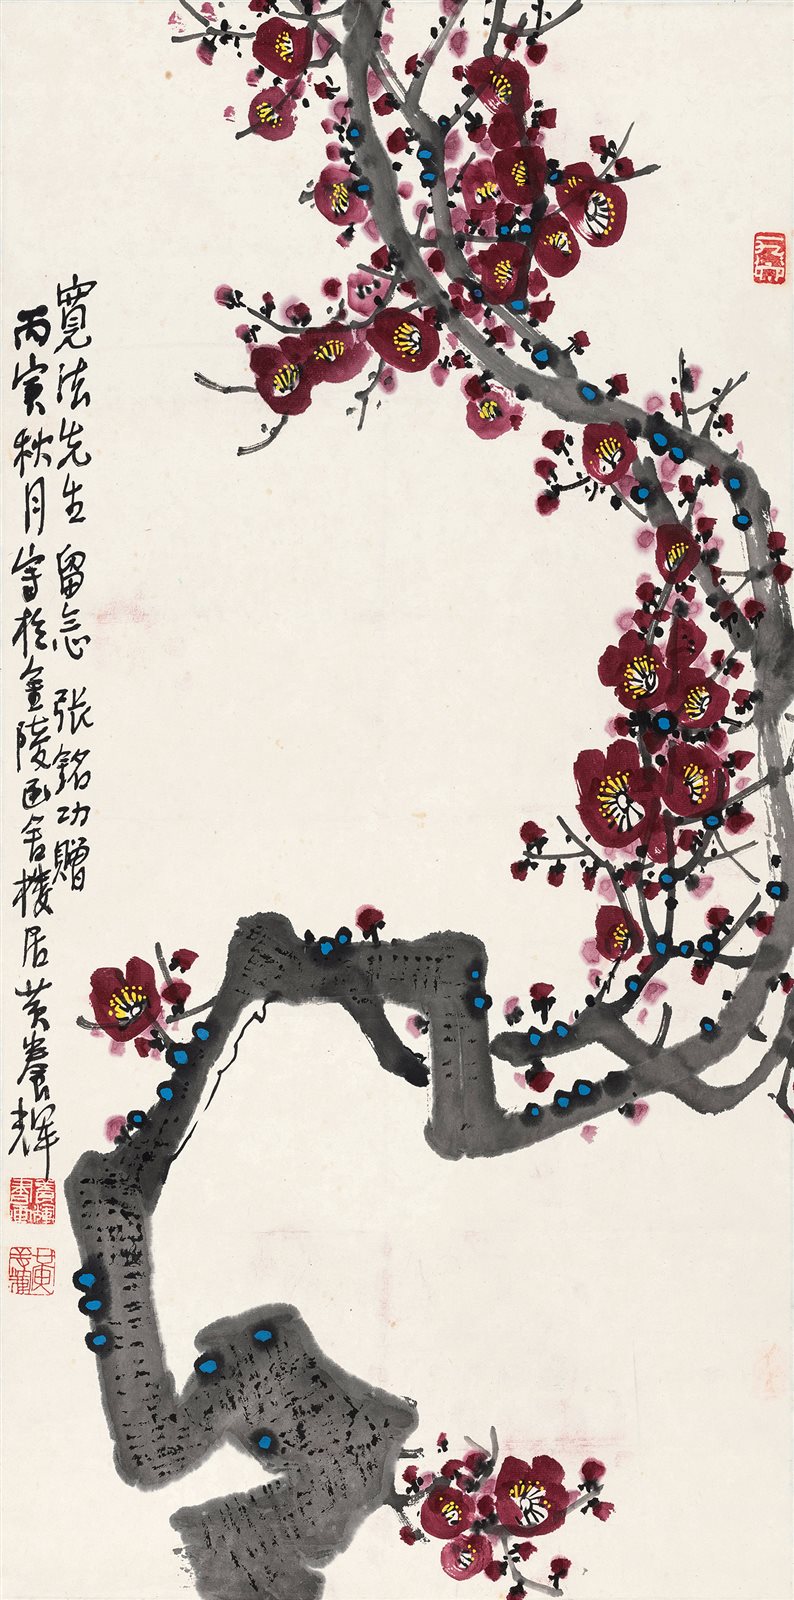 寬法先生留念 張銘功贈
丙寅秋月寫於金陵西舍樓居 黃養輝